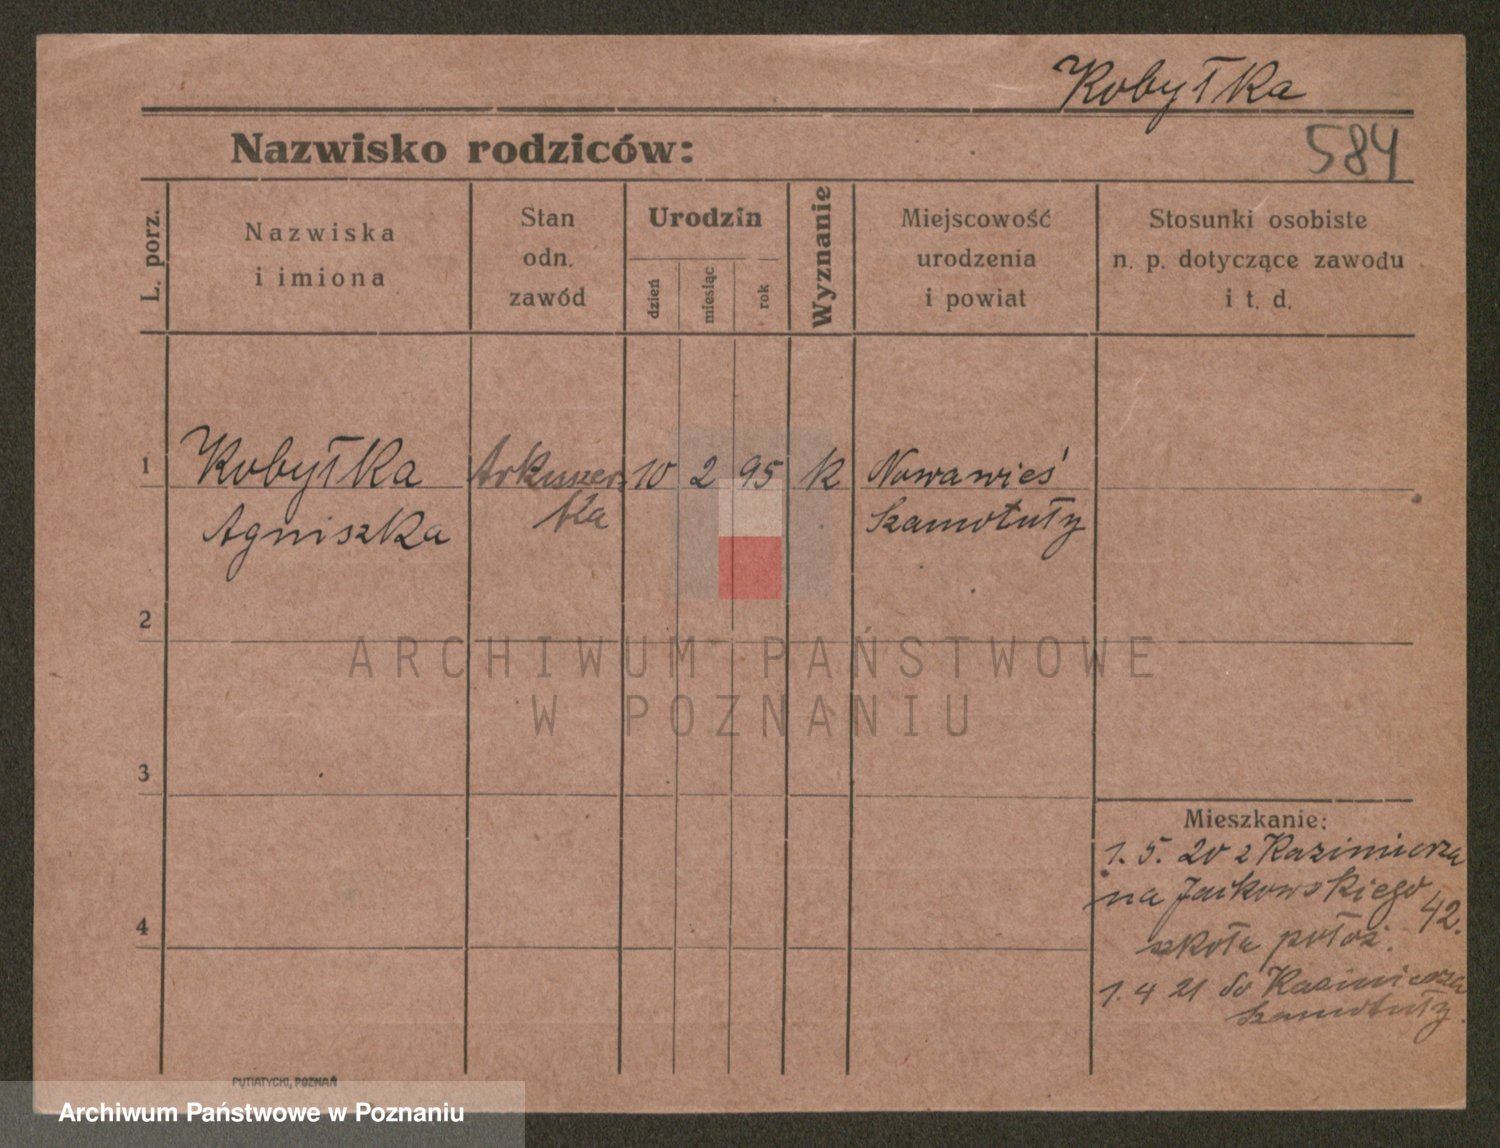 Kobyłka
Nazwisko rodziców:
584
L. porz.
Nazwiska
i imiona
Stan
odn.
zawód
Urodzin
dzień
miesiąc
rok
Wyznanie
Miejscowość
urodzenia
i powiat
Stosunki osobiste
n. p. dotyczące zawodu
i t. d.
1 Kobyłka Akuszer- 10 2 95 k Nowawieś
Agniszka ka Szamotuły
2
ARCHIWUM PAŃSTWOWE
W POZNANIU
3
Mieszkanie:
1. 5. 20 z Kazimierza
na Jackowskiego 42.
szkoła położ.
4
1. 4 21 do Kazimierza
Szamotuły.
PUTIATYCKI, POZNAŃ
Archiwum Państwowe w Poznaniu